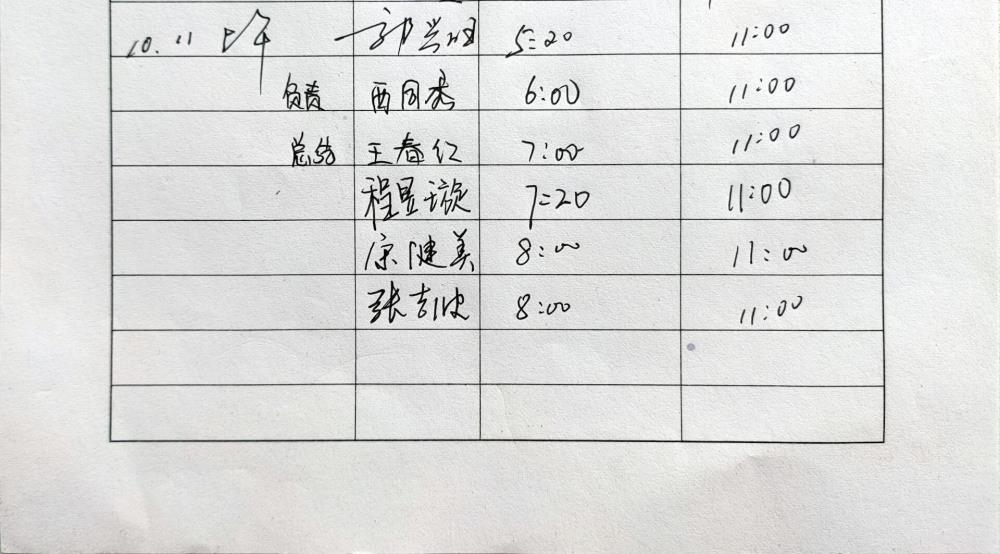 10.11 上午 郭兴旺 5:20 11:00
负责 西同秀 6:00 11:00
总结 王春红 7:00 11:00
程昱璇 7:20 11:00
康健美 8:00 11:00
张吉波 8:00 11:00